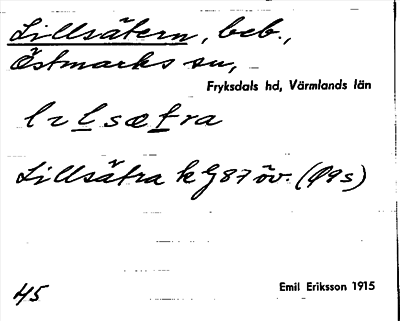 Lillsätern, beb.,
Östmarks sn,
Fryksdals hd, Värmlands län
lılsætra
Lillsätra k G87 öv. (Ø9s)
45 Emil Eriksson 1915